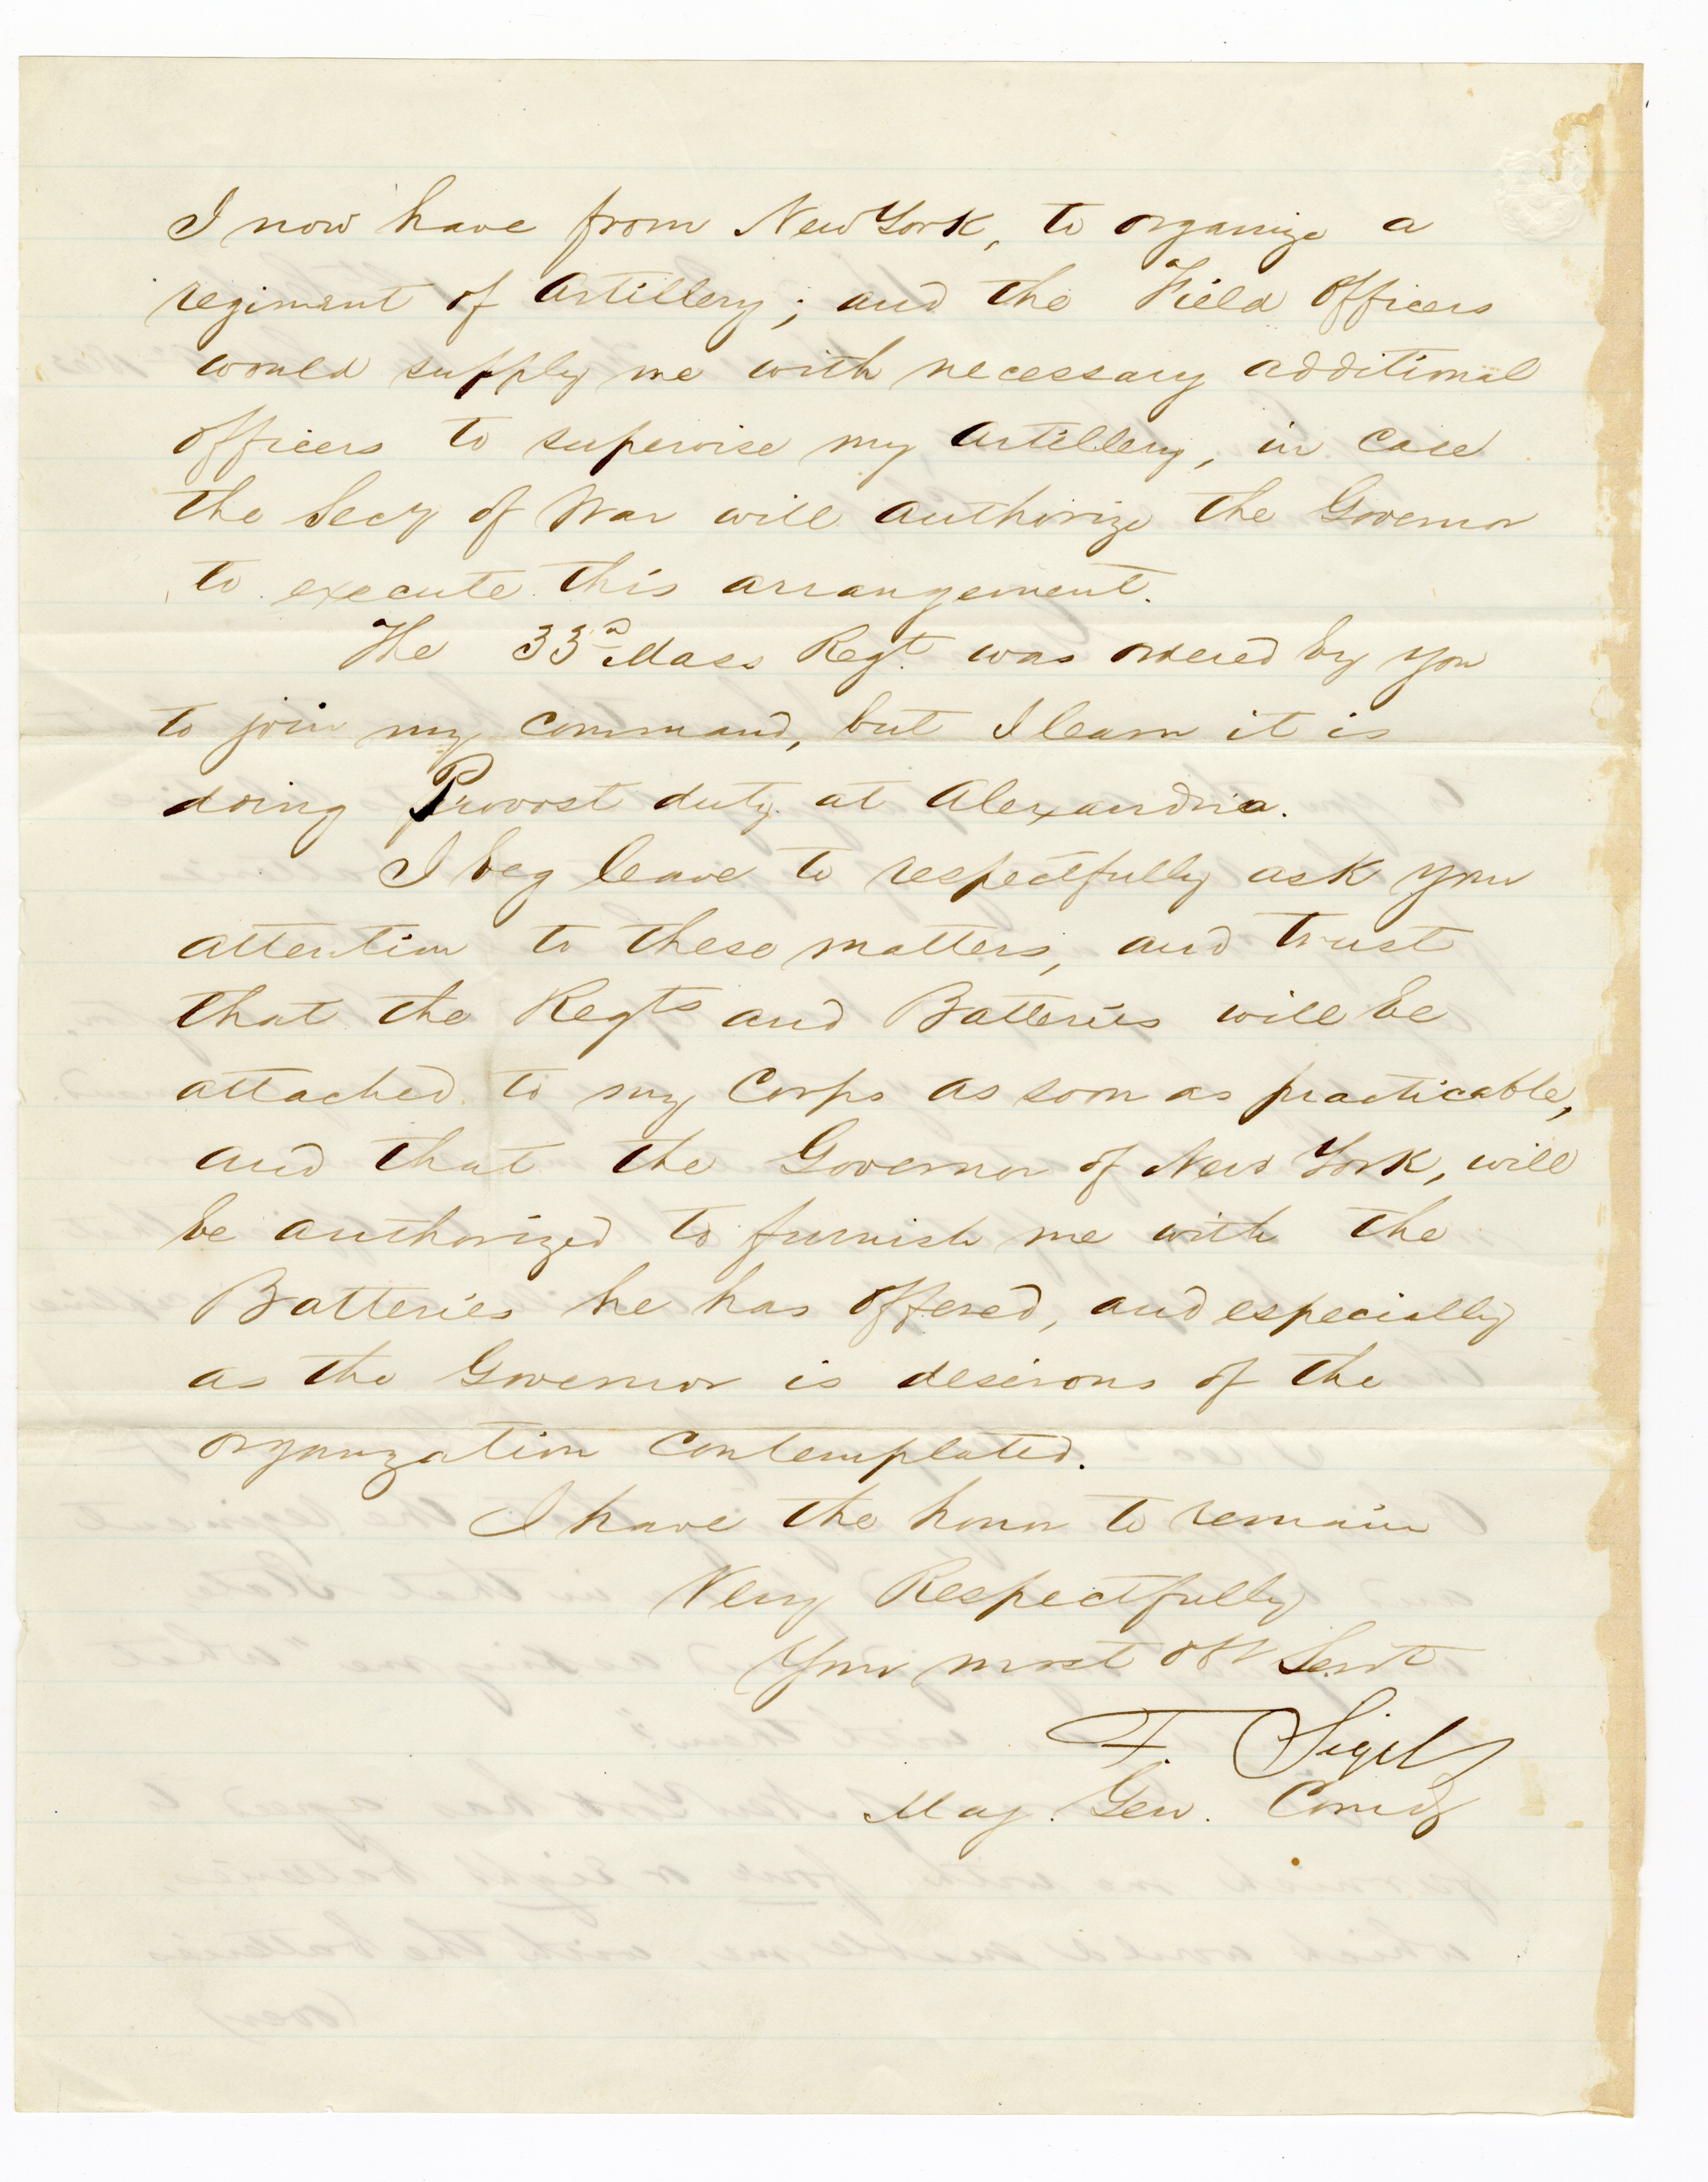 I now have from New York, to organize a
regiment of Artillery; and the Field Officers
would supply me with necessary additional
officers to supervise my Artillery, in case
the Secy of War will authorize the Governor
to execute this arrangement.
The 33d Mass Regt. was ordered by you
to join my command, but I learn it is
doing Provost duty at Alexandria.
I beg leave to respectfully ask your
attention to these matters, and trust
that the Regts and Batteries will be
attached to my Corps as soon as practicable,
and that the Governor of New York, will
be authorized to furnish me with the
Batteries he has offered, and especially
as the Governor is desirous of the
organization contemplated.
I have the honor to remain
Very Respectfully
Your most obt Servt
F. Sigel
Maj. Gen. Comdg